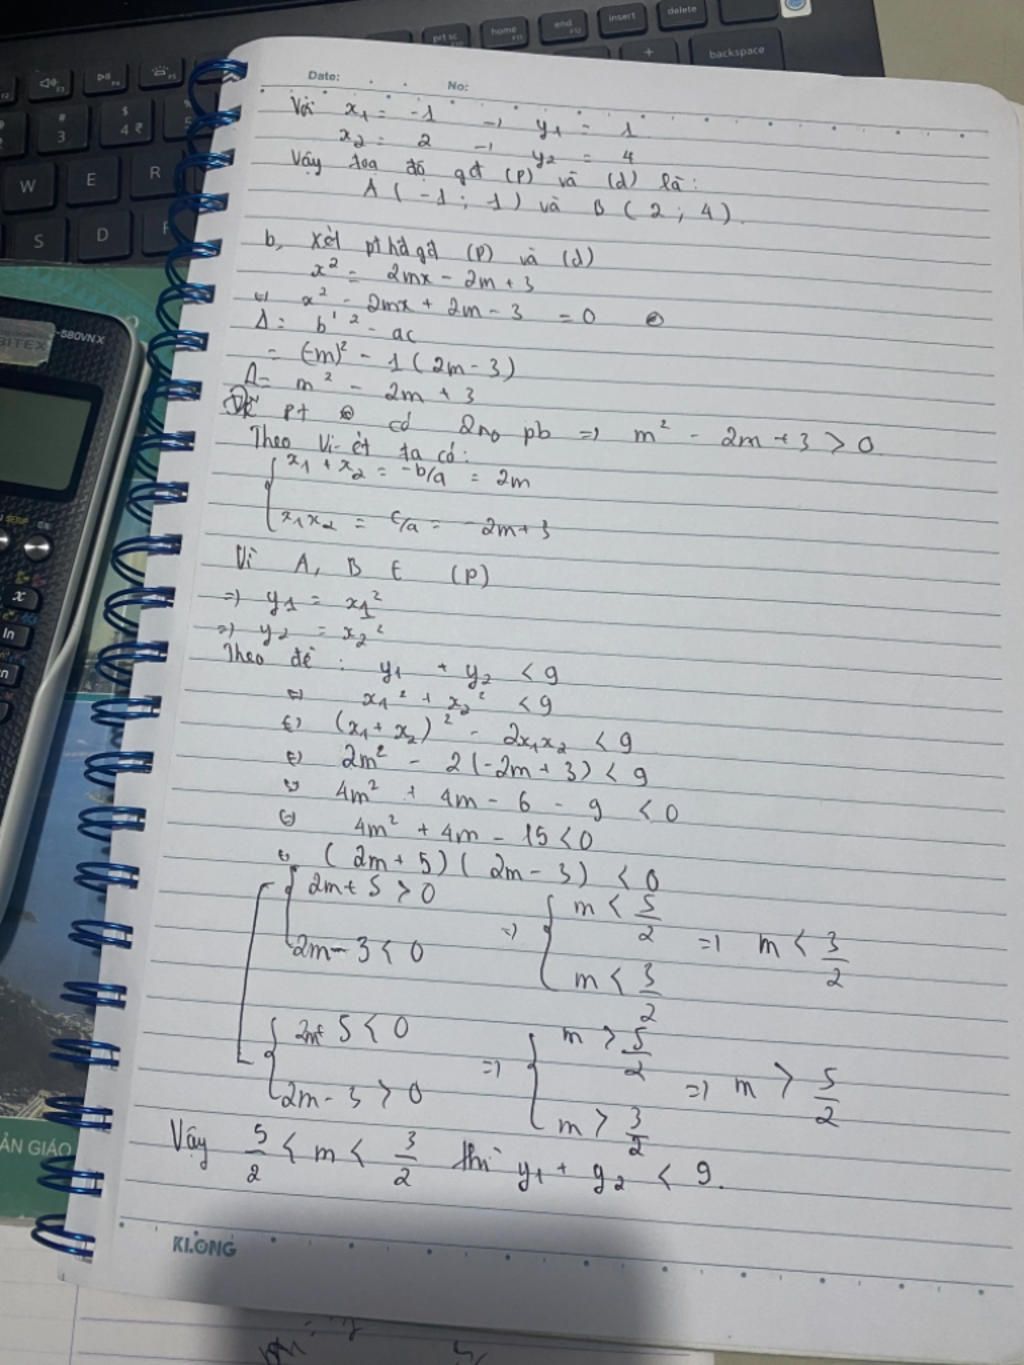 prt sc
home
end
insert
delete
backspace
W E R
S D F
-580VNX
BITEX
SETUP
x
ln
Date: No:
Với x₁ = -1 → y₁ = 1
x₂ = 2 → y₂ = 4
Vậy toạ độ gđ (P) và (d) là:
A (-1; 1) và B (2; 4).
b, Xét pt hđgđ (P) và (d)
x² = 2mx - 2m + 3
⇔ x² - 2mx + 2m - 3 = 0
Δ = b'² - ac
= (-m)² - 1(2m - 3)
Δ = m² - 2m + 3
Để pt có 2no pb ⇒ m² - 2m + 3 > 0
Theo Vi-ét ta có:
{ x₁ + x₂ = -b/a = 2m
x₁x₂ = c/a = -2m + 3
Vì A, B ∈ (P)
⇒ y₁ = x₁²
⇒ y₂ = x₂²
Theo đề : y₁ + y₂ < 9
⇔ x₁² + x₂² < 9
⇔ (x₁ + x₂)² - 2x₁x₂ < 9
⇔ 2m² - 2(-2m + 3) < 9
⇔ 4m² + 4m - 6 - 9 < 0
⇔ 4m² + 4m - 15 < 0
⇔ (2m + 5)(2m - 3) < 0
[ { 2m + 5 > 0 ⇒ { m < 5/2 ⇒ m < 3/2
2m - 3 < 0 m < 3/2
{ 2m + 5 < 0 ⇒ { m > 5/2 ⇒ m > 5/2
2m - 3 > 0 m > 3/2
Vậy 5/2 < m < 3/2 thì y₁ + y₂ < 9.
ẢN GIÁO
KLONG